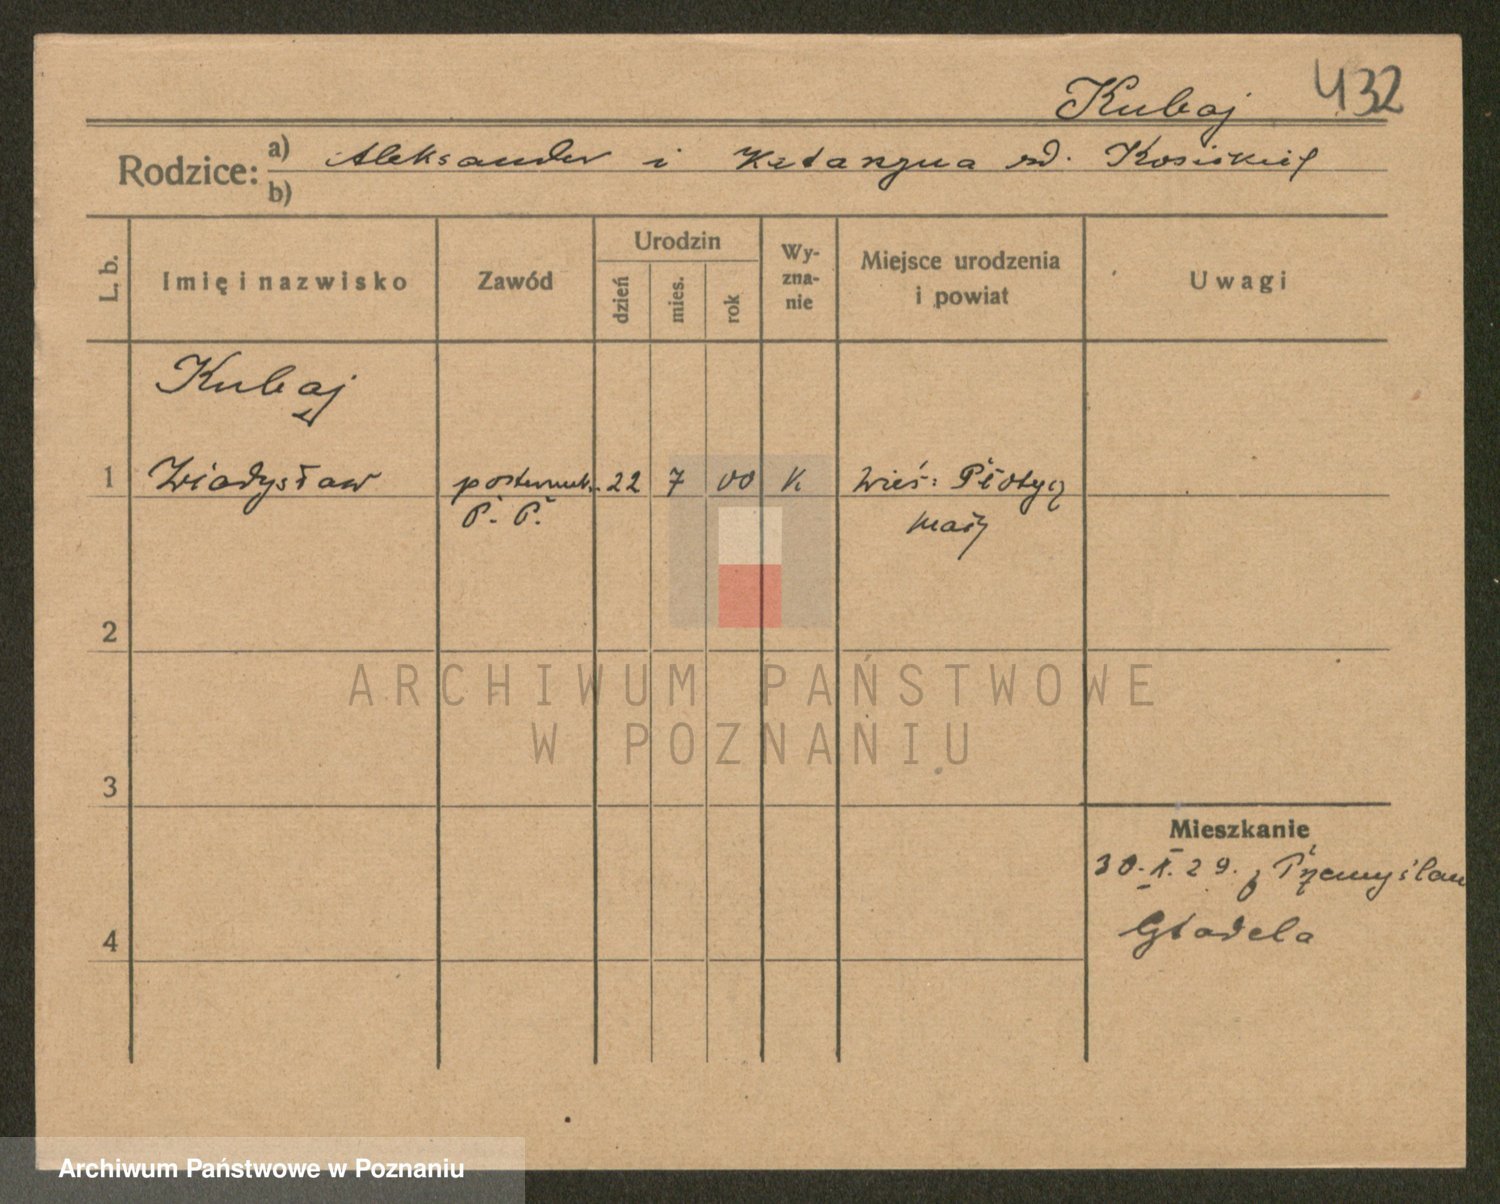 Kubaj 432
Rodzice: a) Aleksander i Katarzyna zd.
b)
L. b. Imię i nazwisko Zawód Urodzin dzień mies. rok Wy-zna-nie Miejsce urodzenia i powiat Uwagi
Kubaj
1 Władysław posterunk. 22 7 00 k wieś: Płotycz
P. P. mały
2
3
Mieszkanie
30. X. 29. z Przemyślan
4 Cytadela
ARCHIWUM PAŃSTWOWE
W POZNANIU
Archiwum Państwowe w Poznaniu